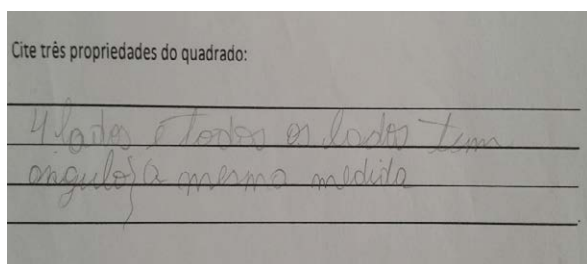 Cite três propriedades do quadrado:
4 lados e todos os lados tem
angulos a mesma medida